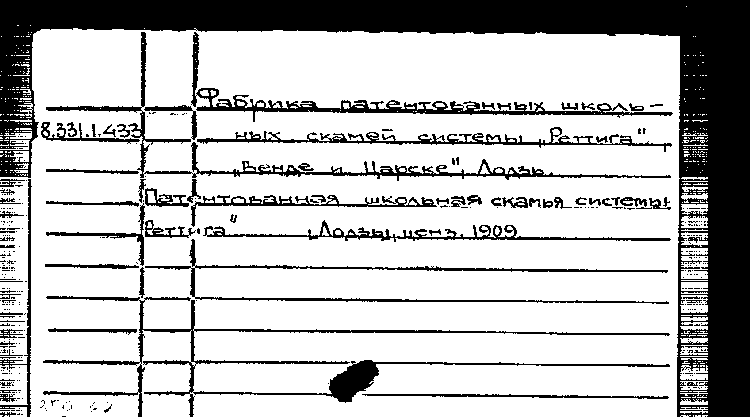 Фабрика патентованных школь-
18.331.1.433 ных скамей системы „Реттига"
„Венде и Царске", Лодзь.
Патентованная школьная скамья системы
Реттига" [Лодзь], ценз. 1909